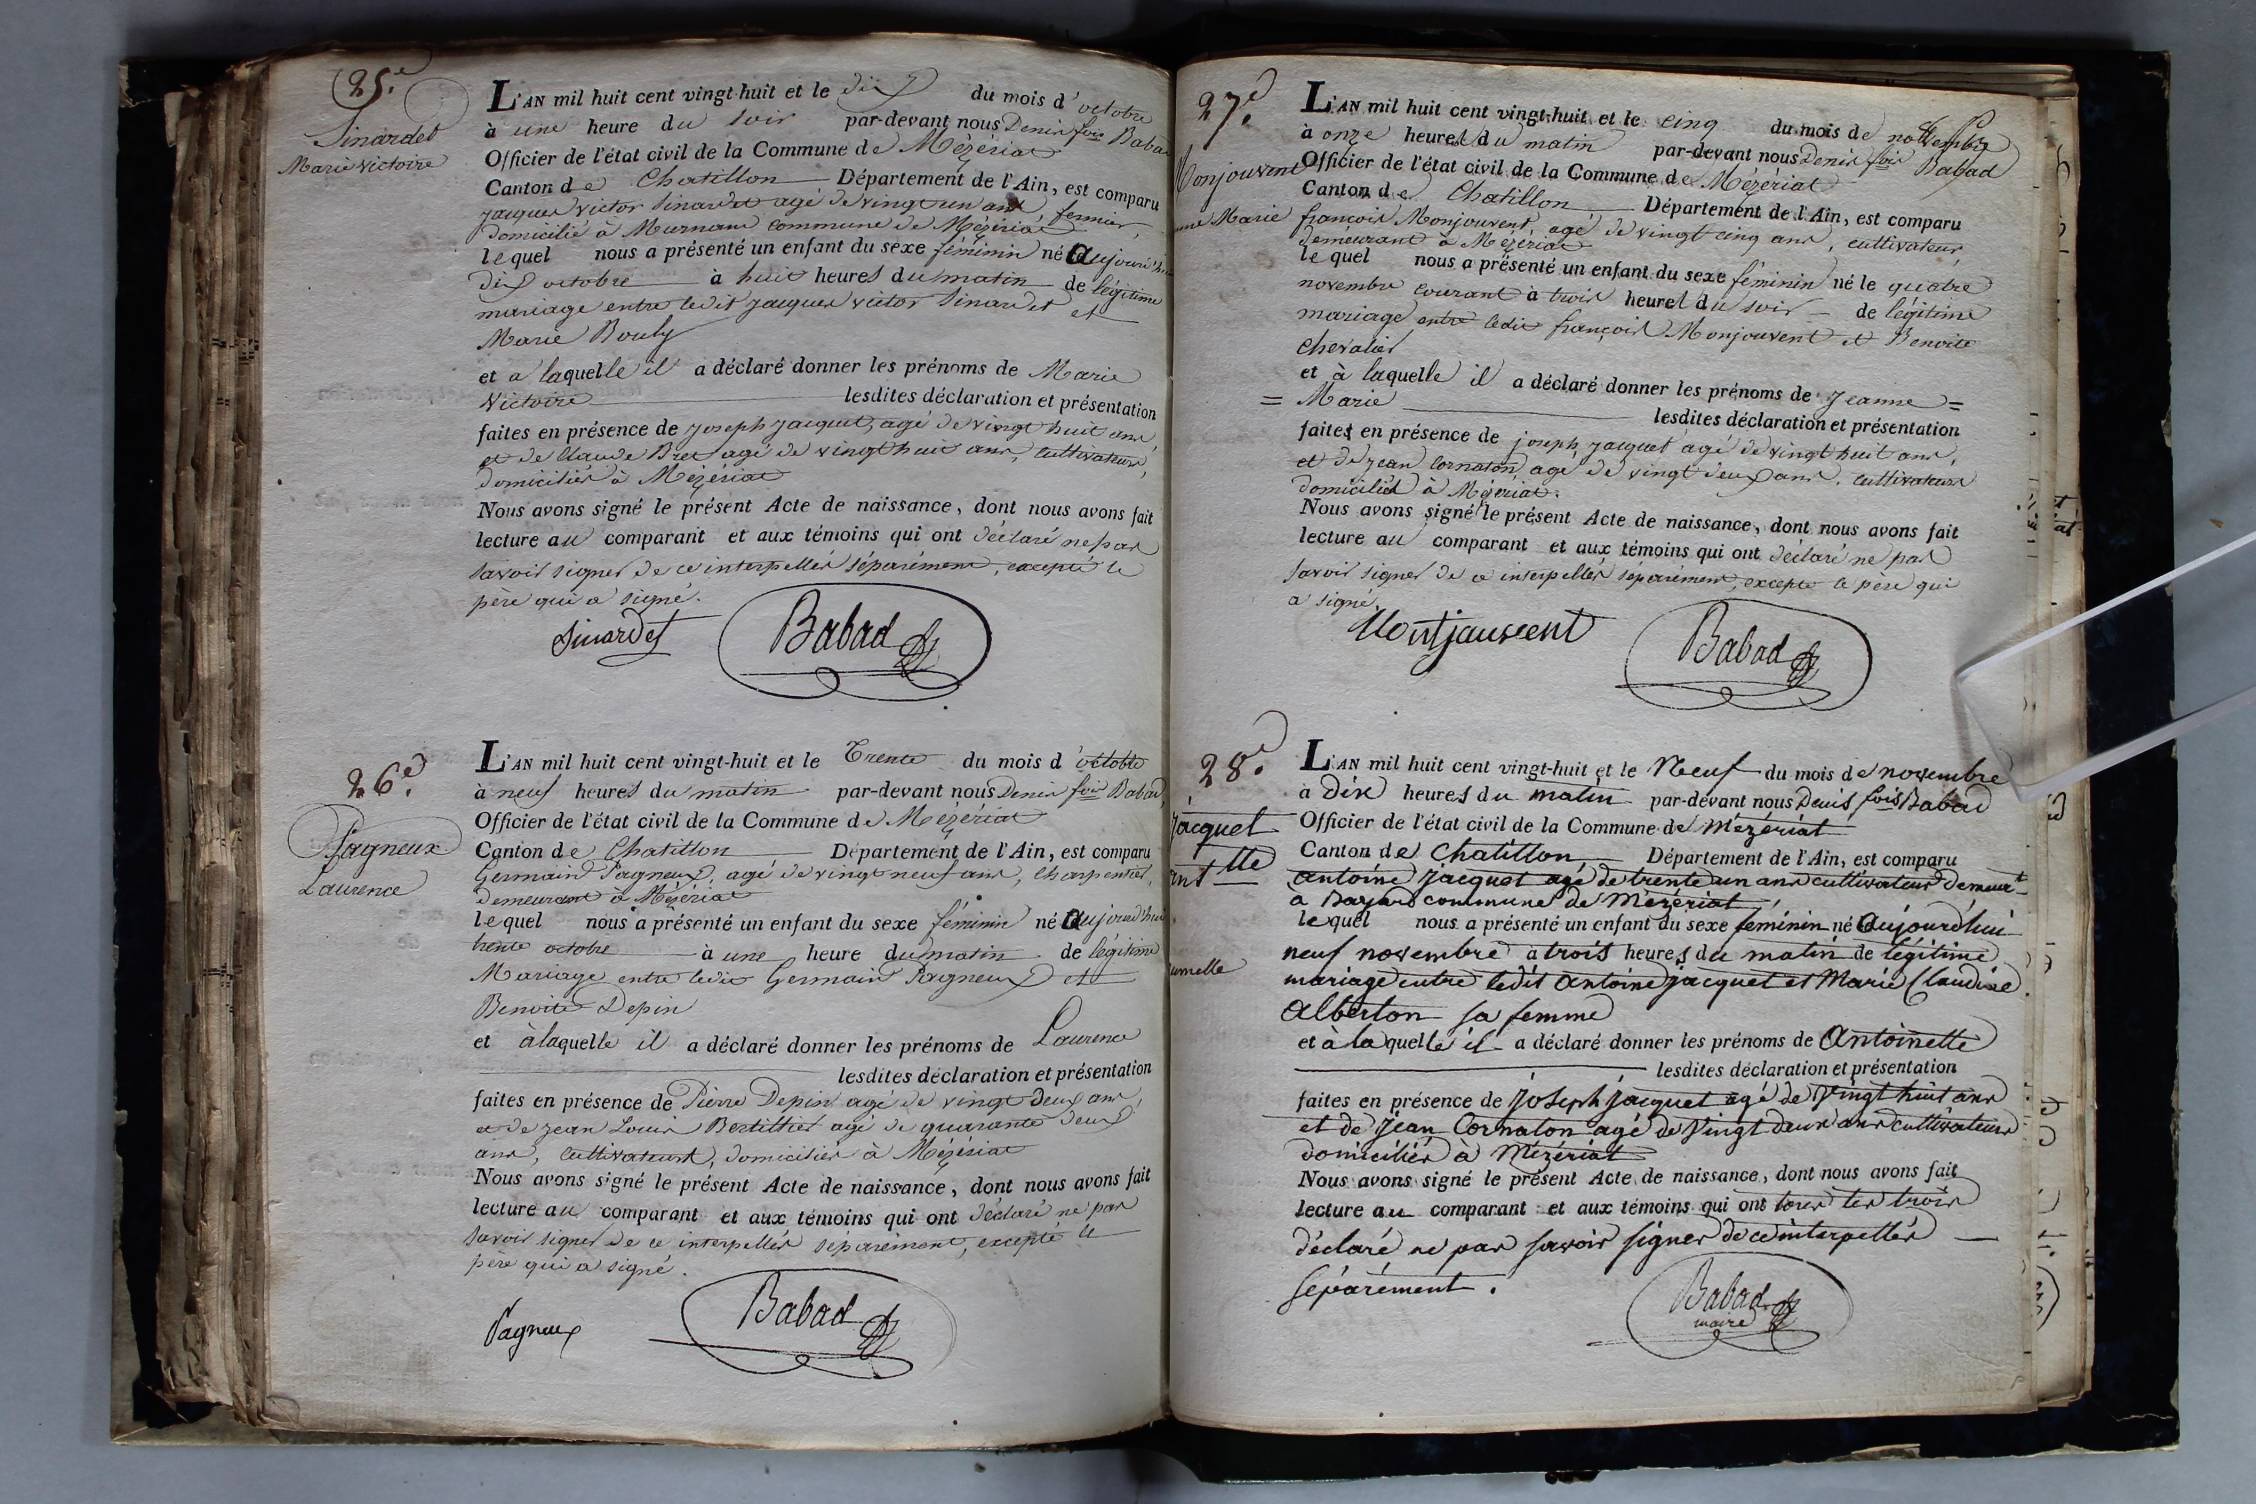 25.e
Sinardet
Marie Victoire
L'AN mil huit cent vingt-huit et le dix du mois d'octobre
à une heure du soir par-devant nous Denis fois Babad
Officier de l'état civil de la Commune de Mézériat
Canton de Chatillon Département de l'Ain, est comparu
jacques victor Sinardet agé de vingt un ans fermier,
domicilié à commune de Mézériat
lequel nous a présenté un enfant du sexe féminin né aujourd'hui
dix octobre à huit heures du matin de légitime
mariage entre ledit jacques victor Sinardet et
Marie Bouly
et a laquelle il a déclaré donner les prénoms de Marie
Victoire lesdites déclaration et présentation
faites en présence de joseph jacquet, agé de vingt huit ans
et de Claude Bret agé de vingt huit ans, cultivateurs,
domiciliés à Mézériat
Nous avons signé le présent Acte de naissance, dont nous avons fait
lecture au comparant et aux témoins qui ont déclaré ne pas
savoir signer de ce interpellés séparément, excepté le
père qui a signé.
Sinardet Babad
26.e
Pagneux
Laurence
L'AN mil huit cent vingt-huit et le Trente du mois d'octobre
à neuf heures du matin par-devant nous Denis fois Babad,
Officier de l'état civil de la Commune de Mézériat
Canton de Chatillon Département de l'Ain, est comparu
Germain Pagneux, agé de vingt neuf ans, charpentier,
demeurant à Mézériat
lequel nous a présenté un enfant du sexe féminin né aujourd'hui
trente octobre à une heure du matin de légitime
Mariage entre ledit Germain Pagneux et
Benoite Depin
et à laquelle il a déclaré donner les prénoms de Laurence
lesdites déclaration et présentation
faites en présence de Pierre Depin agé de vingt deux ans,
et de jean Louis agé de quarante deux
ans, cultivateurs, domiciliés à Mézériat
Nous avons signé le présent Acte de naissance, dont nous avons fait
lecture au comparant et aux témoins qui ont déclaré ne pas
savoir signer de ce interpellés séparément, excepté le
père qui a signé.
Pagneux Babad
27.e
Monjouvent
nne Marie
L'AN mil huit cent vingt-huit et le cinq du mois de novembre
à onze heures du matin par-devant nous Denis fois Babad
Officier de l'état civil de la Commune de Mézériat
Canton de Chatillon Département de l'Ain, est comparu
françois Monjouvent, agé de vingt cinq ans, cultivateur,
demeurant à Mézériat
lequel nous a présenté un enfant du sexe féminin né le quatre
novembre courant à trois heures du soir de légitime
mariage entre ledit françois Monjouvent et Benoite
chevalier
et à laquelle il a déclaré donner les prénoms de jeanne =
= Marie lesdites déclaration et présentation
faites en présence de joseph jacquet agé de vingt huit ans,
et de jean Cornaton agé de vingt deux ans, cultivateurs
domiciliés à Mézériat.
Nous avons signé le présent Acte de naissance, dont nous avons fait
lecture au comparant et aux témoins qui ont déclaré ne pas
savoir signer de ce interpellés séparément, excepté le père qui
a signé.
Montjauvent Babad
28.e
jacquet
ant tte
jumelle
L'AN mil huit cent vingt-huit et le Neuf du mois de novembre
à dix heures du matin par-devant nous Denis fois Babad
Officier de l'état civil de la Commune de Mézériat
Canton de Chatillon Département de l'Ain, est comparu
antoine jacquet agé de trente un ans cultivateur demeurt
a commune de Mézériat
lequel nous a présenté un enfant du sexe féminin né aujourd'hui
neuf novembre à trois heures du matin de légitime
mariage entre ledit antoine jacquet et Marie Claudine
Alberton sa femme
et à laquelle il a déclaré donner les prénoms de Antoinette
lesdites déclaration et présentation
faites en présence de joseph jacquet agé de vingt huit ans
et de jean Cornaton agé de vingt deux ans cultivateurs
domiciliés à Mézériat
Nous avons signé le présent Acte de naissance, dont nous avons fait
lecture au comparant et aux témoins qui ont tous les trois
déclaré ne pas savoir signer de ce interpellés
séparément.
Babad
maire